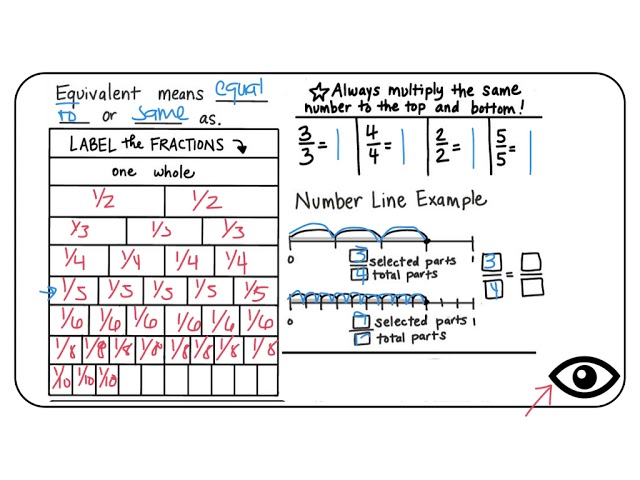 Equivalent means equal
to or same as.
LABEL the FRACTIONS
one whole
1/2 1/2
1/3 1/3 1/3
1/4 1/4 1/4 1/4
1/5 1/5 1/5 1/5 1/5
1/6 1/6 1/6 1/6 1/6 1/6
1/8 1/8 1/8 1/8 1/8 1/8 1/8 1/8
1/10 1/10 1/10
☆ Always multiply the same
number to the top and bottom!
3/3 = 1 4/4 = 1 2/2 = 1 5/5 = 1
Number Line Example
0 1
3 selected parts
4 total parts
3/4 =
0 1
selected parts
total parts